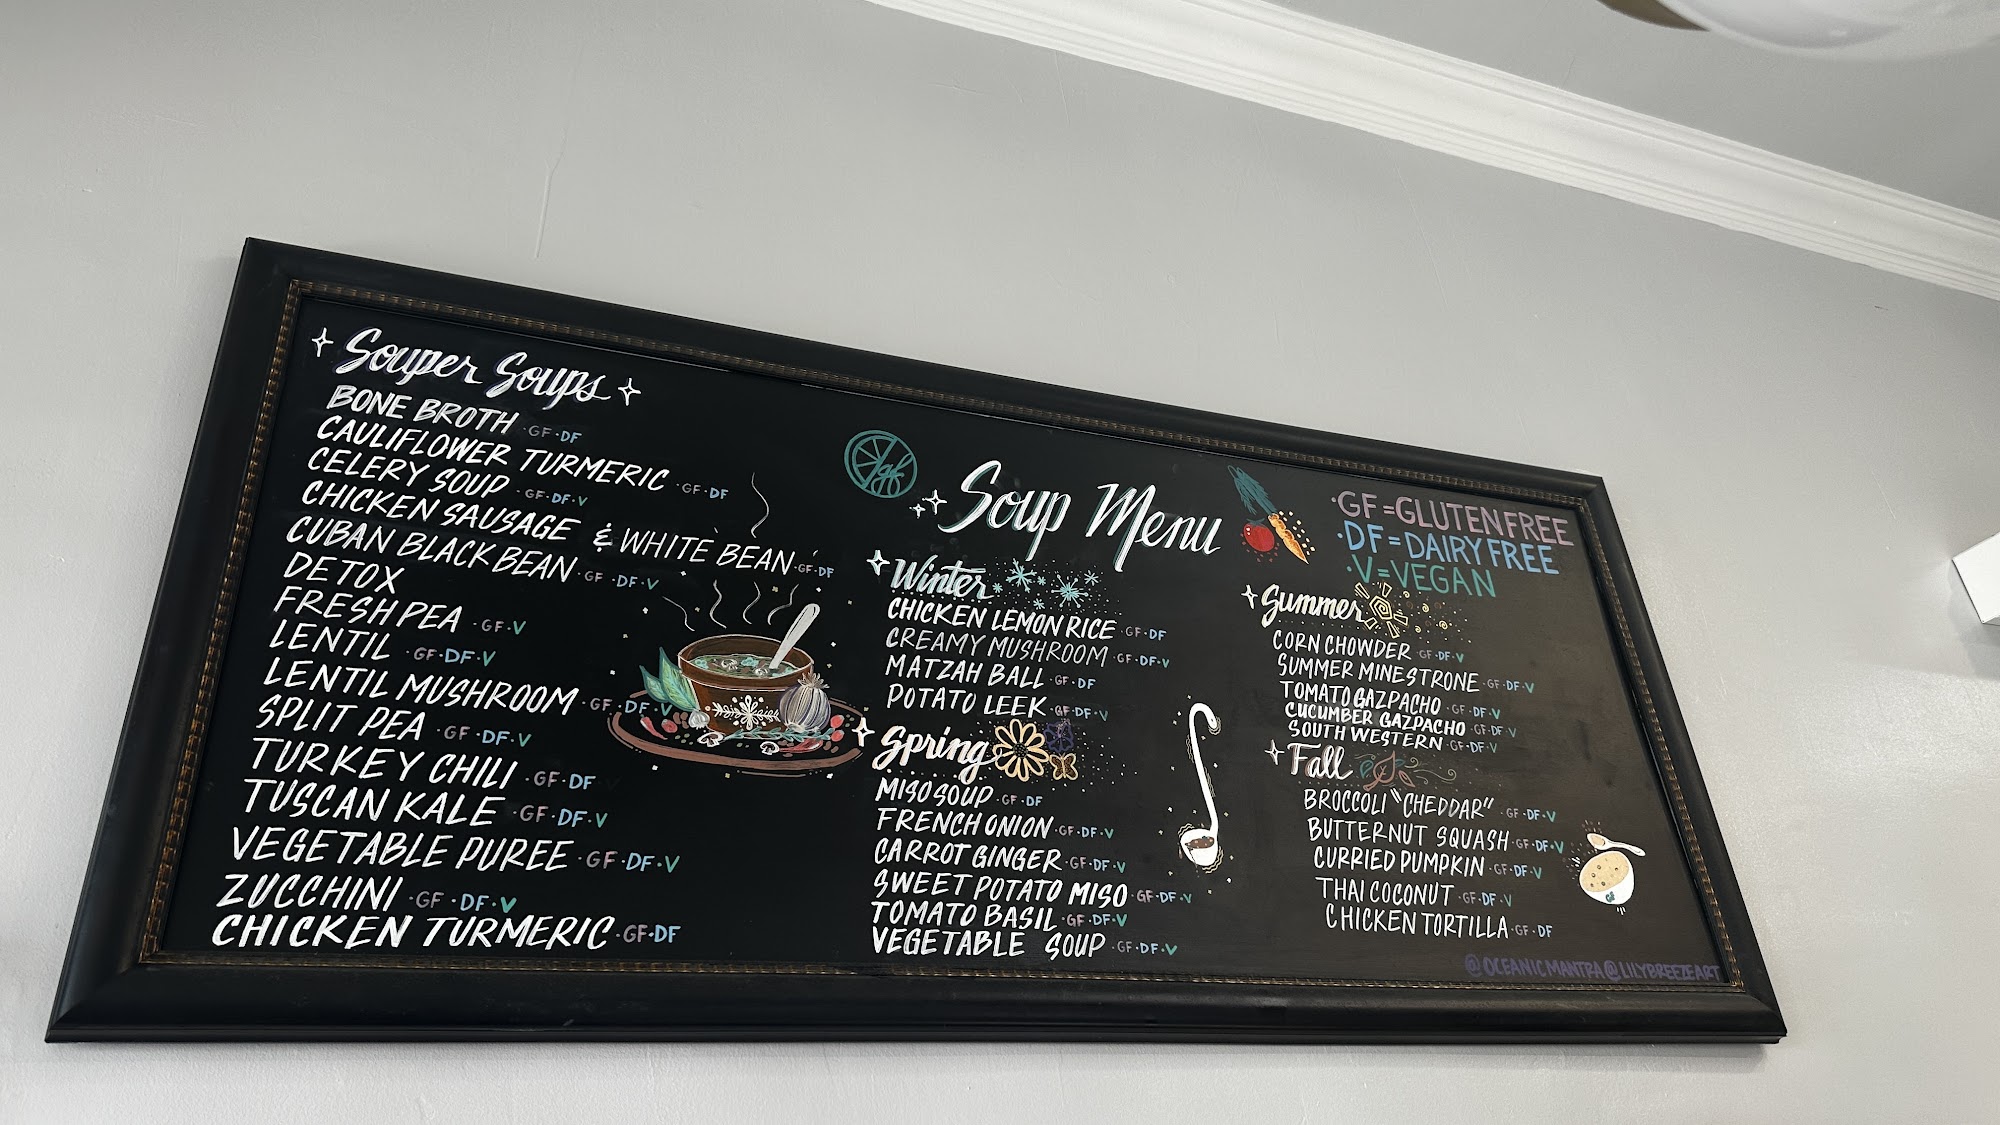 Souper Soups
BONE BROTH ·GF·DF
CAULIFLOWER TURMERIC ·GF·DF
CELERY SOUP ·GF·DF·V
CHICKEN SAUSAGE & WHITE BEAN·GF·DF
CUBAN BLACK BEAN ·GF·DF·V
DETOX
FRESH PEA ·GF·V
LENTIL ·GF·DF·V
LENTIL MUSHROOM ·GF·DF·V
SPLIT PEA ·GF·DF·V
TURKEY CHILI ·GF·DF
TUSCAN KALE ·GF·DF·V
VEGETABLE PUREE ·GF·DF·V
ZUCCHINI ·GF·DF·V
CHICKEN TURMERIC ·GF·DF
Soup Menu
Winter
CHICKEN LEMON RICE ·GF·DF
CREAMY MUSHROOM ·GF·DF·V
MATZAH BALL ·GF·DF
POTATO LEEK ·GF·DF·V
Spring
MISO SOUP ·GF·DF
FRENCH ONION ·GF·DF·V
CARROT GINGER ·GF·DF·V
SWEET POTATO MISO ·GF·DF·V
TOMATO BASIL ·GF·DF·V
VEGETABLE SOUP ·GF·DF·V
·GF=GLUTEN FREE
·DF=DAIRY FREE
·V=VEGAN
Summer
CORN CHOWDER ·GF·DF·V
SUMMER MINESTRONE ·GF·DF·V
TOMATO GAZPACHO ·GF·DF·V
CUCUMBER GAZPACHO ·GF·DF·V
SOUTH WESTERN ·GF·DF·V
Fall
BROCCOLI "CHEDDAR" ·GF·DF·V
BUTTERNUT SQUASH ·GF·DF·V
CURRIED PUMPKIN ·GF·DF·V
THAI COCONUT ·GF·DF·V
CHICKEN TORTILLA ·GF·DF
@OCEANICMANTRA@LILYBREEZEART